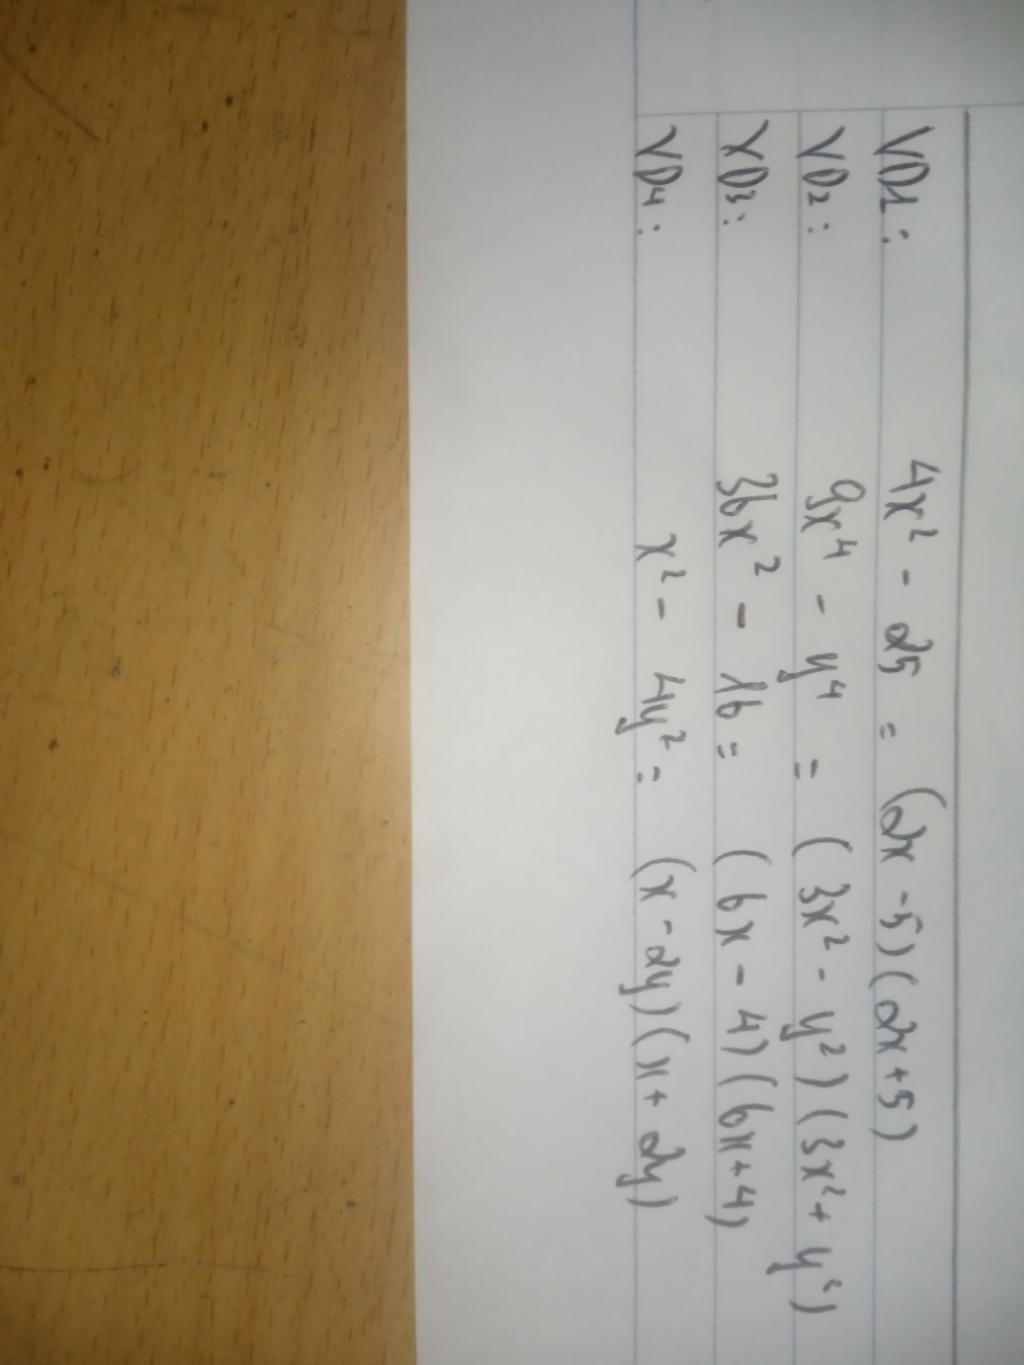 VD1: 4x² - 25 = (2x - 5)(2x + 5)
VD2: 9x⁴ - y⁴ = (3x² - y²)(3x² + y²)
VD3: 36x² - 16 = (6x - 4)(6x + 4)
VD4: x² - 4y² = (x - 2y)(x + 2y)